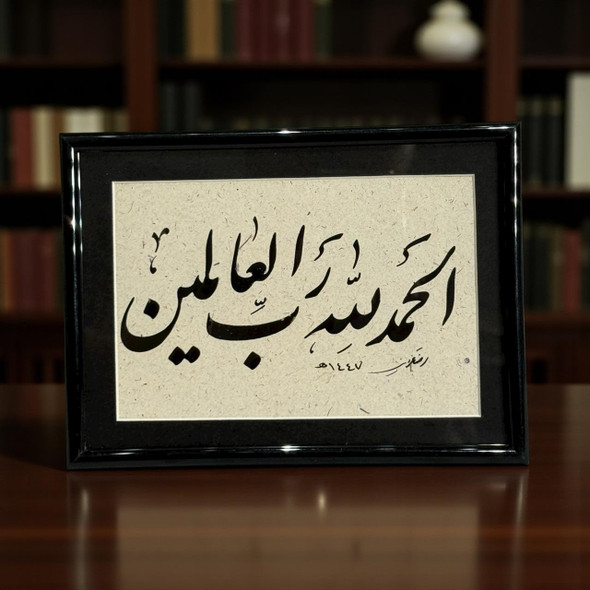 الحَمدُ للهِ رَبِّ العالمين
رمضان ١٤٤٧هـ